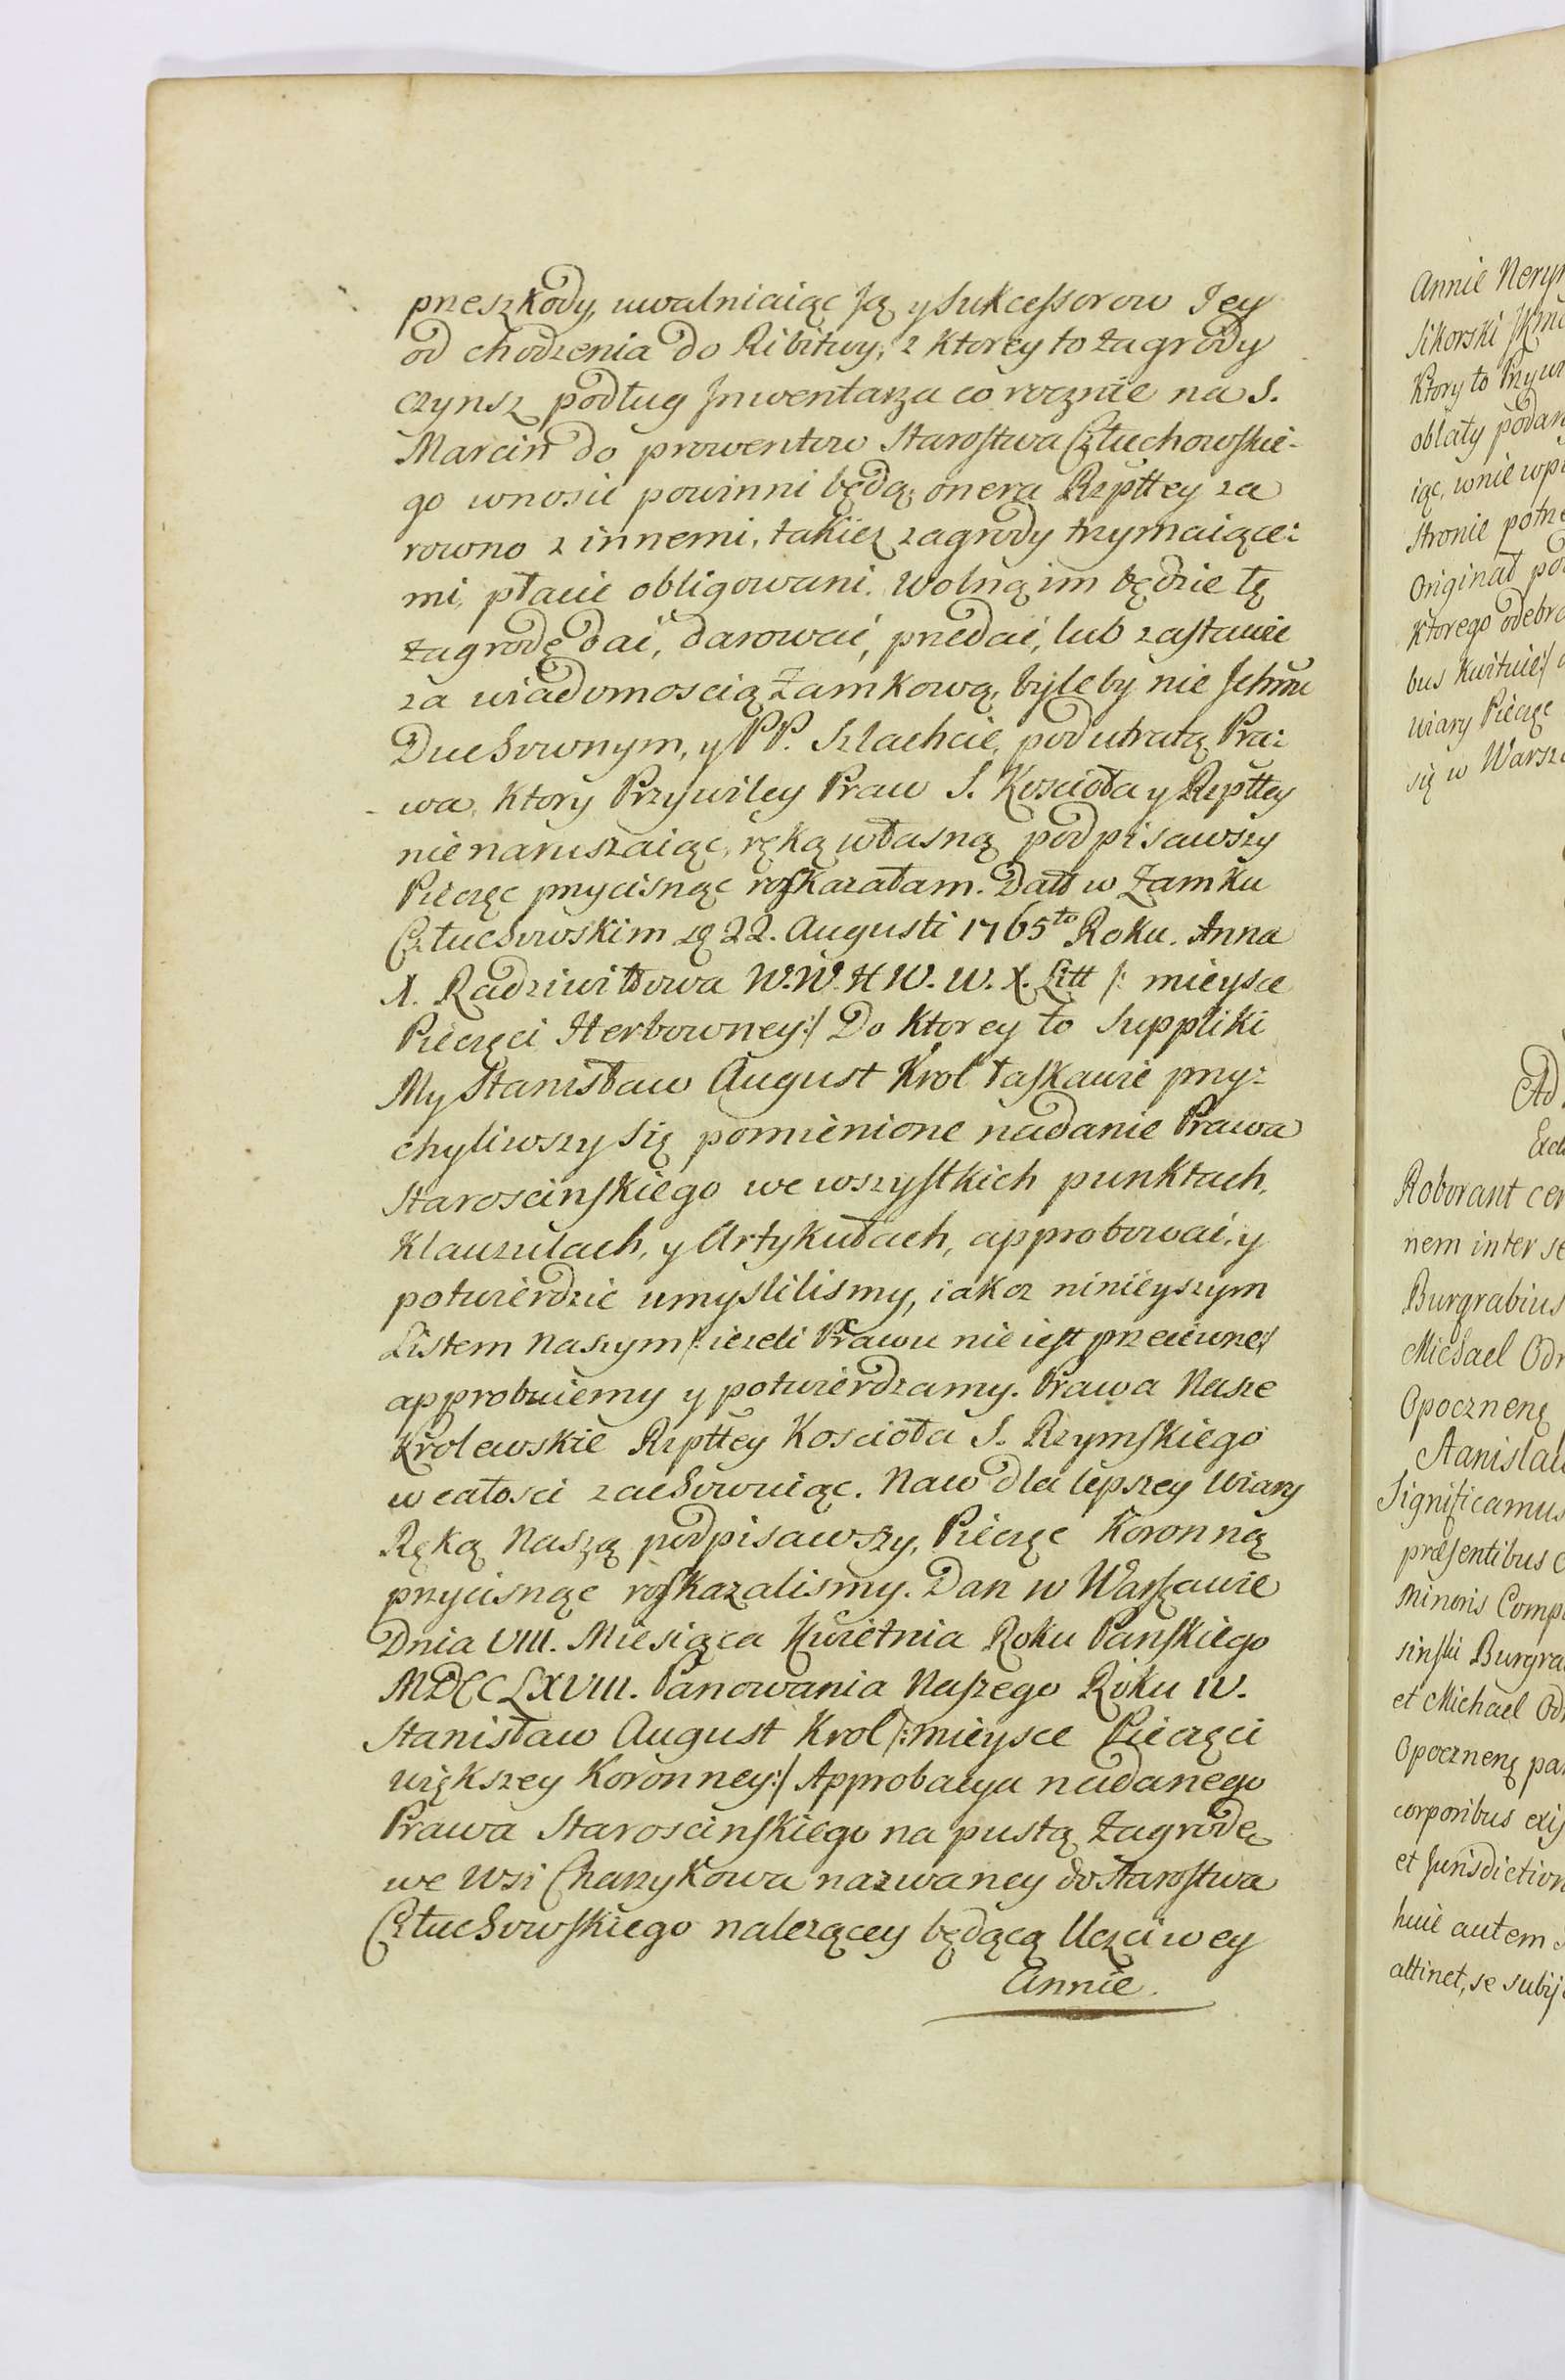 przeszkody, uwalniaiąc Ją y Sukcessorow Jey
od chodzenia do Ribitwy, z ktorey to Zagrody
czynsz podług Jnwentarza co rocznie na S.
Marcin do prowentow Starostwa Człuchowskie-
go wnosić powinni będą, onera Rzpttey za
rowno z innemi, takież zagrody trzymaiące:
mi, płacić obligowani. Wolną im będzie tę
Zagrodę dać, darować, przedać, lub zastawić
za wiadomoscią Zamkową, byleby nie Jchmu
Duchownym, y PP. Szlachcie, pod utratą Pra:
wa, ktory Przywiley Praw S. Kościoła y Rzpttey
nienaruszaiąc, ręką własną podpisawszy
Pieczęc przycisnąc roskazałam. Datt w Zamku
Człuchowskim 22. Augusti 1765to Roku. Anna
X. Radziwiłłowa W. W. H W. W. X. Litt /: mieysce
Pieczęci Herbowney:/ Do ktorey to Suppliki
My Stanisław August Krol łaskawie przy:
chyliwszy Się pomienione nadanie Prawa
Staroscinskiego we wszystkich punktach,
Klauzulach, y Artykułach, approbować, y
potwierdzić umyslilismy, iakoz ninieyszym
Listem Naszym /: iezeli Prawu nie iest przeciwne:/
approbuiemy y potwierdzamy. Prawa Nasze
Krolewskie Rzpttey Kościoła S. Rzymskiego
w całosci zachowuiąc. Na co dla lepszey Wiary
Ręką Naszą podpisawszy, Pieczęc Koronną
przycisnąc roskazalismy. Dan w Warszawie
Dnia VIII. Miesiąca Kwietnia Roku Panskiego
MDCCLXVIII. Panowania Naszego Roku IV.
Stanisław August Krol /: mieysce Pieczęci
większey Koronney:/ Approbacya nadanego
Prawa Staroscinskiego na pustą Zagrodę
we Wsi Charzykowa nazwaney do Starostwa
Człuchowskiego nalezącey będącą Uczciwey
Annie.
Annie
Sikorski
Ktory to
oblaty podan
iąc, w nie
Stronie
Originał
Ktorego odebra
bus Kwituie:/
Wiary Pieczęc
się w Warsz
Ad
Roborant
nem inter se
Burgrabius
Michael Odr
Opocznenę
Stanislau
Significamus
præsentibus
Minoris
sinski Burgra
et Michael Od
Opocznenę pa
corporibus
et Jurisdiction
huic autem
attinet, se